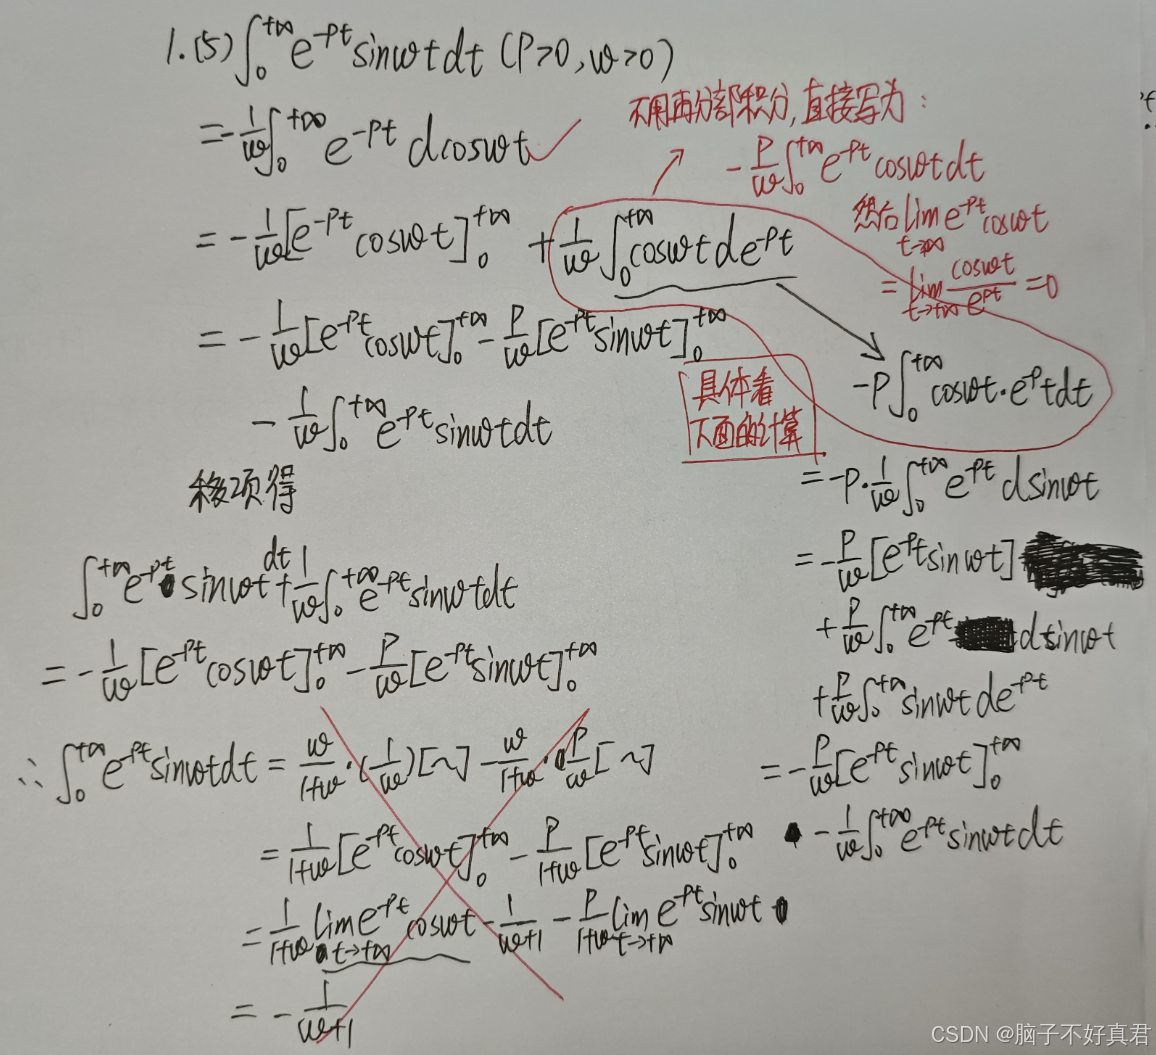 1.(5) ∫₀^{+∞} e^{-pt} sinωt dt (P>0, ω>0)
= -1/ω ∫₀^{+∞} e^{-pt} dcosωt ✓
= -1/ω [e^{-pt} cosωt]₀^{+∞} + 1/ω ∫₀^{+∞} cosωt de^{-pt}
= -1/ω [e^{-pt} cosωt]₀^{+∞} - P/ω [e^{-pt} sinωt]₀^{+∞}
- 1/ω ∫₀^{+∞} e^{-pt} sinωt dt
移项得
∫₀^{+∞} e^{-pt} sinωt dt + 1/ω ∫₀^{+∞} e^{-pt} sinωt dt
= -1/ω [e^{-pt} cosωt]₀^{+∞} - P/ω [e^{-pt} sinωt]₀^{+∞}
∴ ∫₀^{+∞} e^{-pt} sinωt dt = ω/(1+ω) · (1/ω) [~] - ω/(1+ω) · P/ω [~]
= 1/(1+ω) [e^{-pt} cosωt]₀^{+∞} - P/(1+ω) [e^{-pt} sinωt]₀^{+∞}
= 1/(1+ω) lim_{t→+∞} e^{-pt} cosωt - 1/(ω+1) - P/(1+ω) lim_{t→+∞} e^{-pt} sinωt
= -1/(ω+1)
不用再分部积分,直接写为:
-P/ω ∫₀^{+∞} e^{-pt} cosωt dt
然后 lim_{t→∞} e^{-pt} cosωt
= lim_{t→+∞} cosωt/e^{pt} = 0
具体看
下面的计算
-P ∫₀^{+∞} cosωt · e^{-pt} dt
= -P · 1/ω ∫₀^{+∞} e^{-pt} dsinωt
= -P/ω [e^{-pt} sinωt]
+ P/ω ∫₀^{+∞} e^{-pt} dsinωt
+ P/ω ∫₀^{+∞} sinωt de^{-pt}
= -P/ω [e^{-pt} sinωt]₀^{+∞}
- 1/ω ∫₀^{+∞} e^{-pt} sinωt dt
CSDN @脑子不好真君